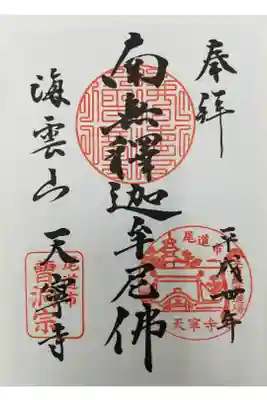 奉拝
平成四年
南無釋迦牟尼佛
海雲山
天寧寺
尾道市
天寧寺
尾道市
曹洞宗